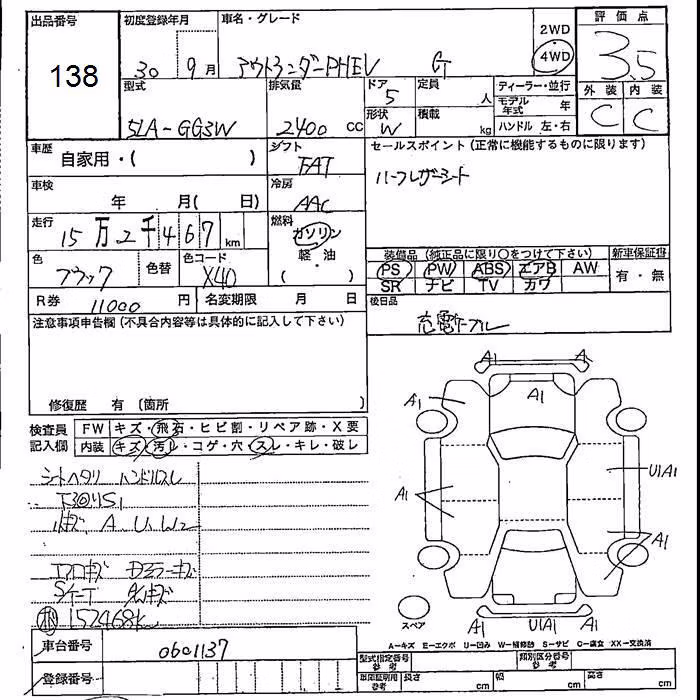 出品番号
138
初度登録年月
30 9月
車名・グレード
アウトランダーPHEV G
2WD
4WD
評価点
3.5
外装 内装
C C
型式
5LA-GG3W
排気量
2400 cc
ドア
5
形状
W
定員
人
積載
kg
ディーラー・並行
モデル年式 年
ハンドル 左・右
車歴
自家用・( )
シフト
FAT
セールスポイント (正常に機能するものに限ります)
ハーフレザーシート
車検
年 月( 日)
冷房
AAC
走行
15万2千467km
燃料
ガソリン
軽・油
( )
色
ブラック
色替
色コード
X40
装備品 (純正品に限り○をつけて下さい)
新車保証書
PS PW ABS エアB AW
SR ナビ TV カワ
有・無
R券 11000 円
名変期限 月 日
後日品
充電ケーブル
注意事項申告欄 (不具合内容等は具体的に記入して下さい)
修復歴 有 〔箇所
検査員記入欄
FW キズ・飛石・ヒビ割・リペア跡・X要
内装 キズ・汚れ・コゲ・穴・スレ・キレ・破レ
シートヘタリ ハンドルスレ
A、U、W2
エアロキズ ドアミラーキズ
152468km
A1 A1
A1 A1
A1 U1A1
A1
A1 U1A1 A1
スペア
A−キズ E−エクボ U−凹み W−補修跡 S−サビ C−腐食 XX−交換済
車台番号
0601137
登録番号
型式指定番号 参考
類別区分番号 参考
車庫証明用 参考
長さ cm
幅 cm
高さ cm